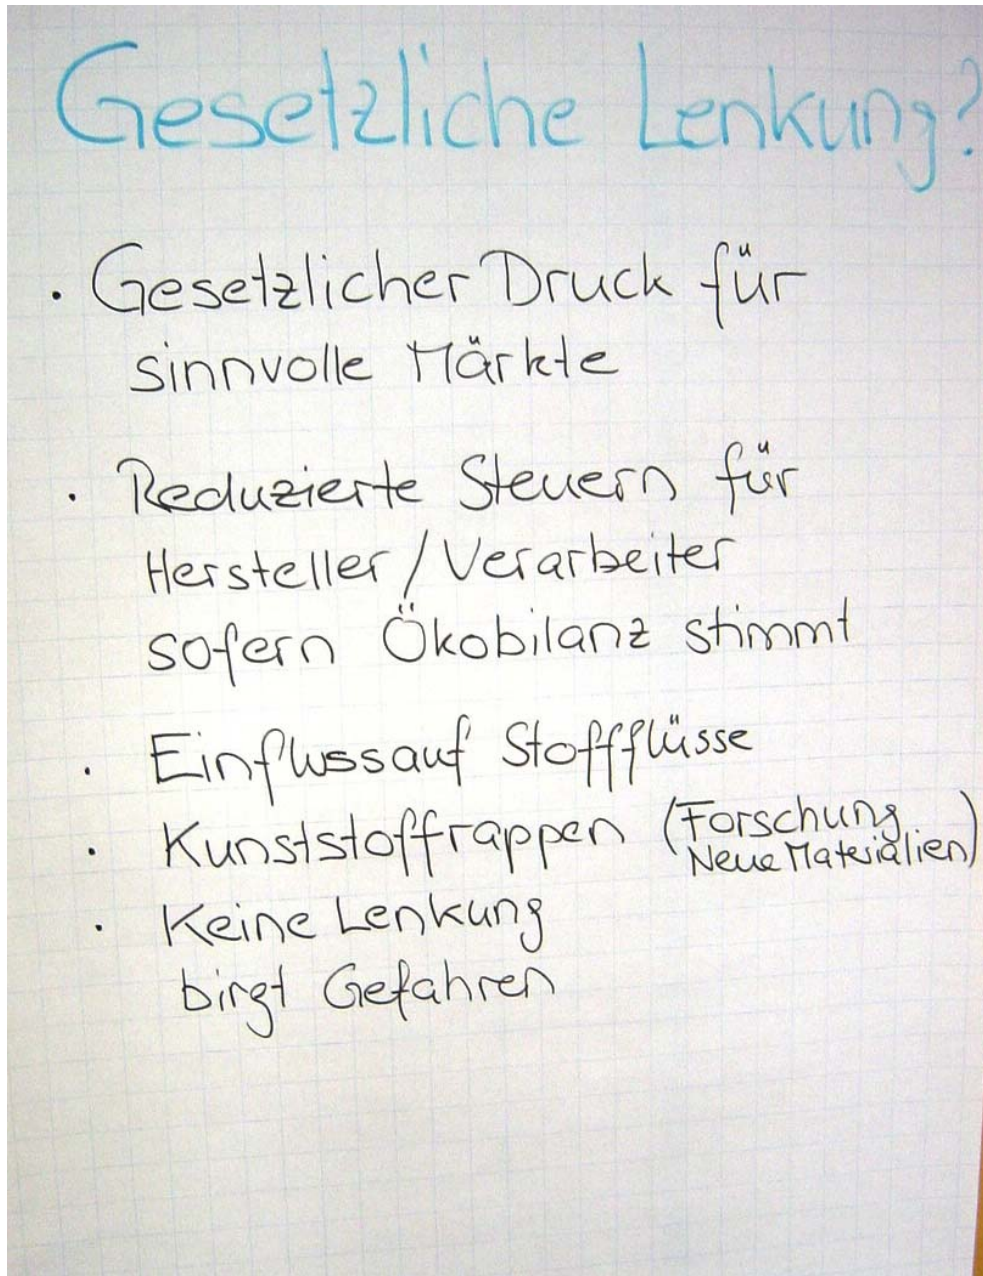 Gesetzliche Lenkung?
· Gesetzlicher Druck für
sinnvolle Märkte
· Reduzierte Steuern für
Hersteller/Verarbeiter
sofern Ökobilanz stimmt
· Einfluss auf Stoffflüsse
· Kunststoffrappen (Forschung
Neue Materialien)
· Keine Lenkung
birgt Gefahren